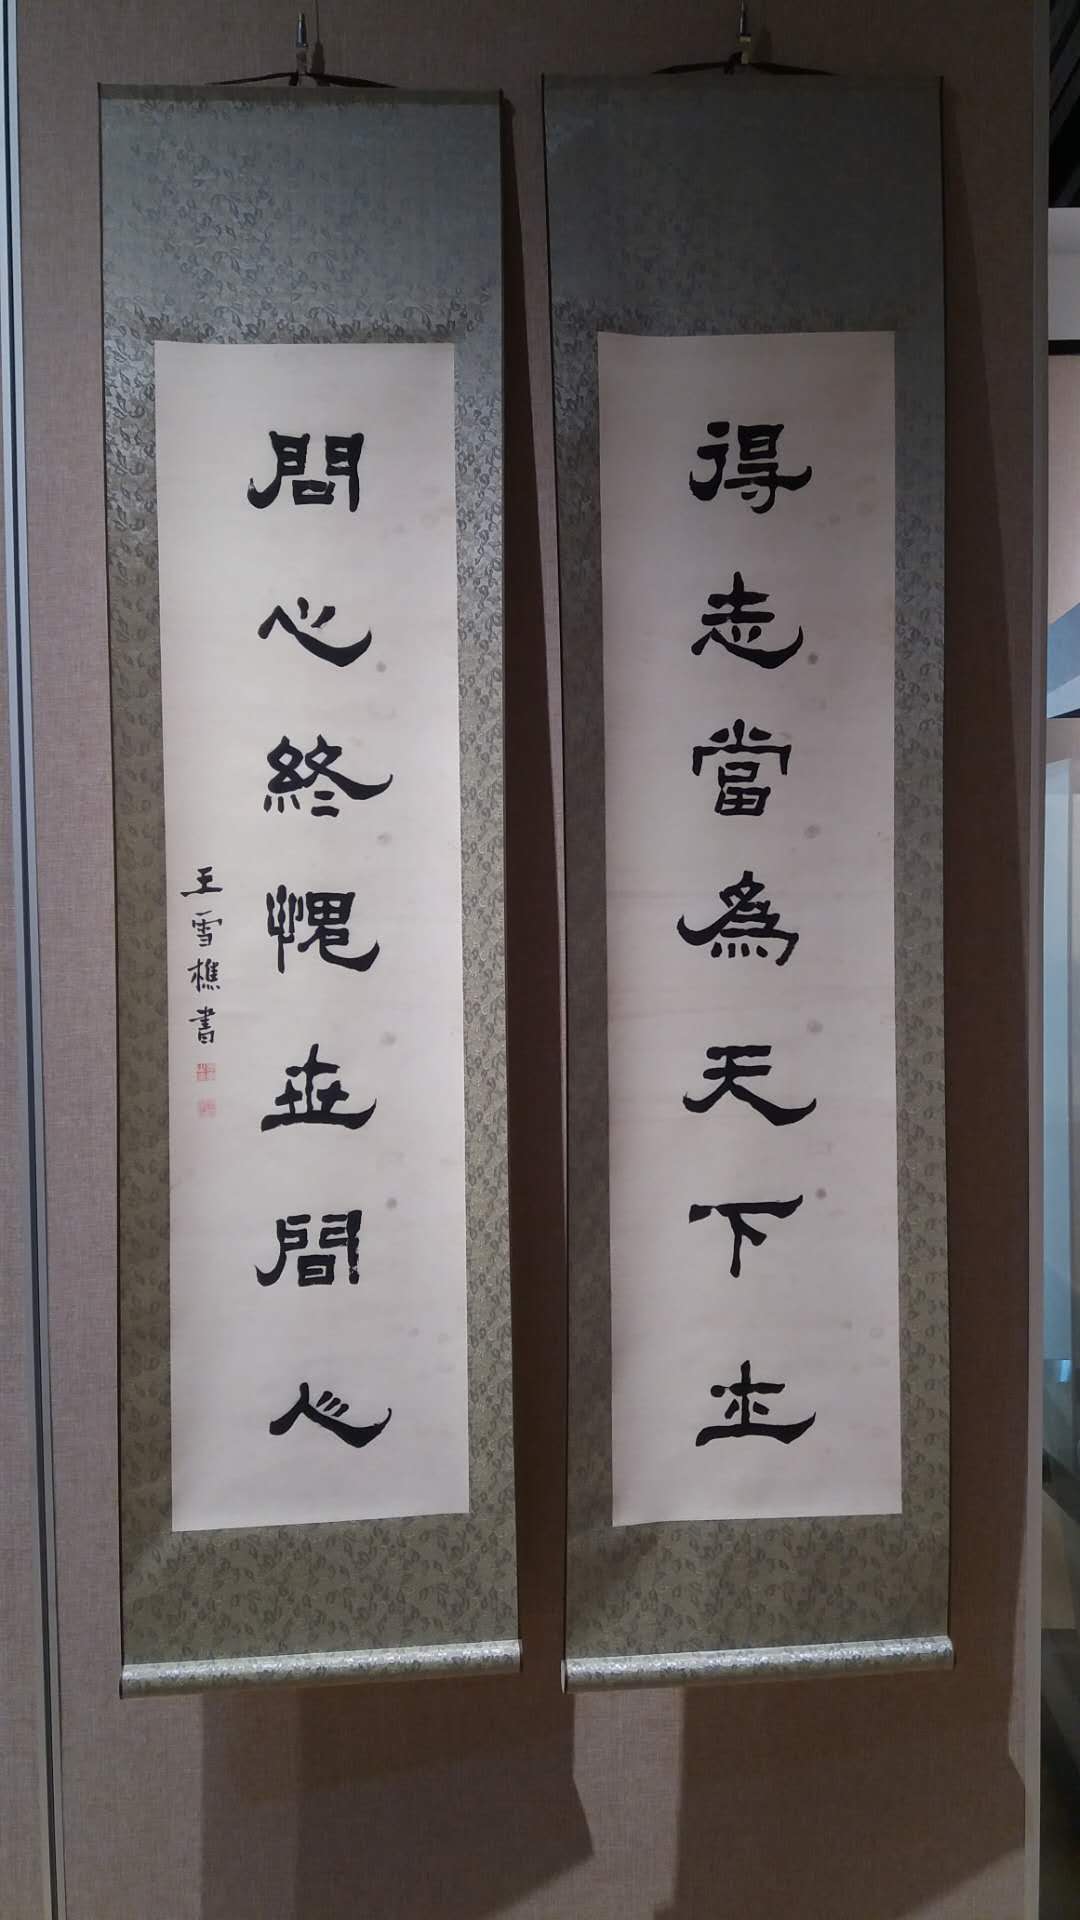 得志當爲天下士
問心終愧世間人
王雪樵書